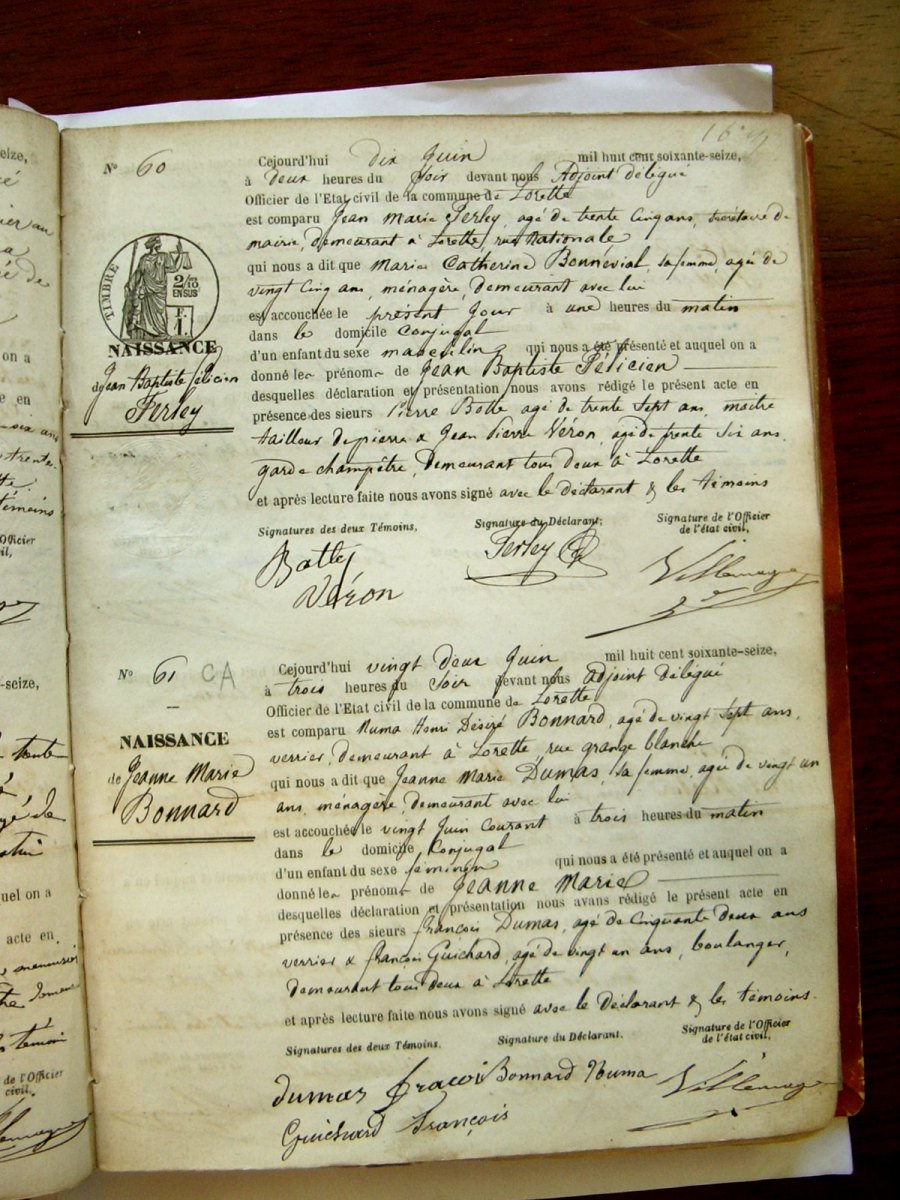 N° 60
Cejourd'hui dix Juin mil huit cent soixante-seize,
à deux heures du Soir devant nous Adjoint délégué
Officier de l'Etat civil de la commune de Lorette
est comparu Jean Marie Ferley, agé de trente Cinq ans, Secrétaire de
mairie, demeurant à Lorette, rue Nationale
qui nous a dit que Marie Catherine Bonnevial, sa femme, agée de
vingt Cinq ans, ménagère, demeurant avec lui
est accouchée le présent Jour à une heures du matin
dans le domicile Conjugal
d'un enfant du sexe masculin qui nous a été présenté et auquel on a
donné le prénom de Jean Baptiste Félicien
desquelles déclaration et présentation nous avons rédigé le présent acte en
présence des sieurs Pierre Botte agé de trente Sept ans, maitre
tailleur de pierre & Jean Pierre Véron, agé de trente Six ans,
garde champêtre, Demeurant tous deux à Lorette
et après lecture faite nous avons signé avec le déclarant & les témoins
Signatures des deux Témoins,
Signature du Déclarant,
Signature de l'Officier
de l'état civil,
Véron
Ferley
Villemagne
TIMBRE
2/10
EN SUS
F.
1.
NAISSANCE
de Jean Baptiste Félicien
Ferley
N° 61 CA
NAISSANCE
de Jeanne Marie
Bonnard
Cejourd'hui vingt deux Juin mil huit cent soixante-seize,
à trois heures du Soir devant nous adjoint délégué
Officier de l'Etat civil de la commune de Lorette
est comparu Numa Henri Désiré Bonnard, agé de vingt Sept ans,
verrier, demeurant à Lorette, rue grange blanche
qui nous a dit que Jeanne Marie Dumas, sa femme, agée de vingt un
ans, ménagère, demeurant avec lui
est accouchée le vingt Juin Courant à trois heures du matin
dans le domicile Conjugal
d'un enfant du sexe féminin qui nous a été présenté et auquel on a
donné le prénom de Jeanne Marie
desquelles déclaration et présentation nous avons rédigé le présent acte en
présence des sieurs françois Dumas, agé de Cinquante deux ans
verrier & françois Guichard, agé de vingt un ans, boulanger,
demeurant tous deux à Lorette
et après lecture faite nous avons signé avec le Déclarant & les témoins.
Signatures des deux Témoins.
Signature du Déclarant.
Signature de l'Officier
de l'état civil,
dumas
Bonnard Numa
Villemagne
Guichard François